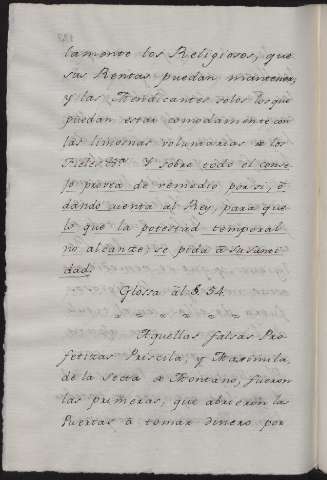 lamente los Religiosos, que
sus Rentas puedan mantener,
y las Mendicantes solos los que
puedan estar comodamente con
las limosnas voluntarias de los
Fieles. Y sobre todo el conse-
jo provea de remedio por si, ó
dando cuenta al Rey, para que
lo que la potestad temporal
no alcanze, se pida à su Santi-
dad.
Glossa àl §. 54.
Aquellas falsas Pro-
fetizas Priscila, y Maximila,
de la secta de Montano, fueron
las primeras, que abrieron las
Puertas à tomar dinero por